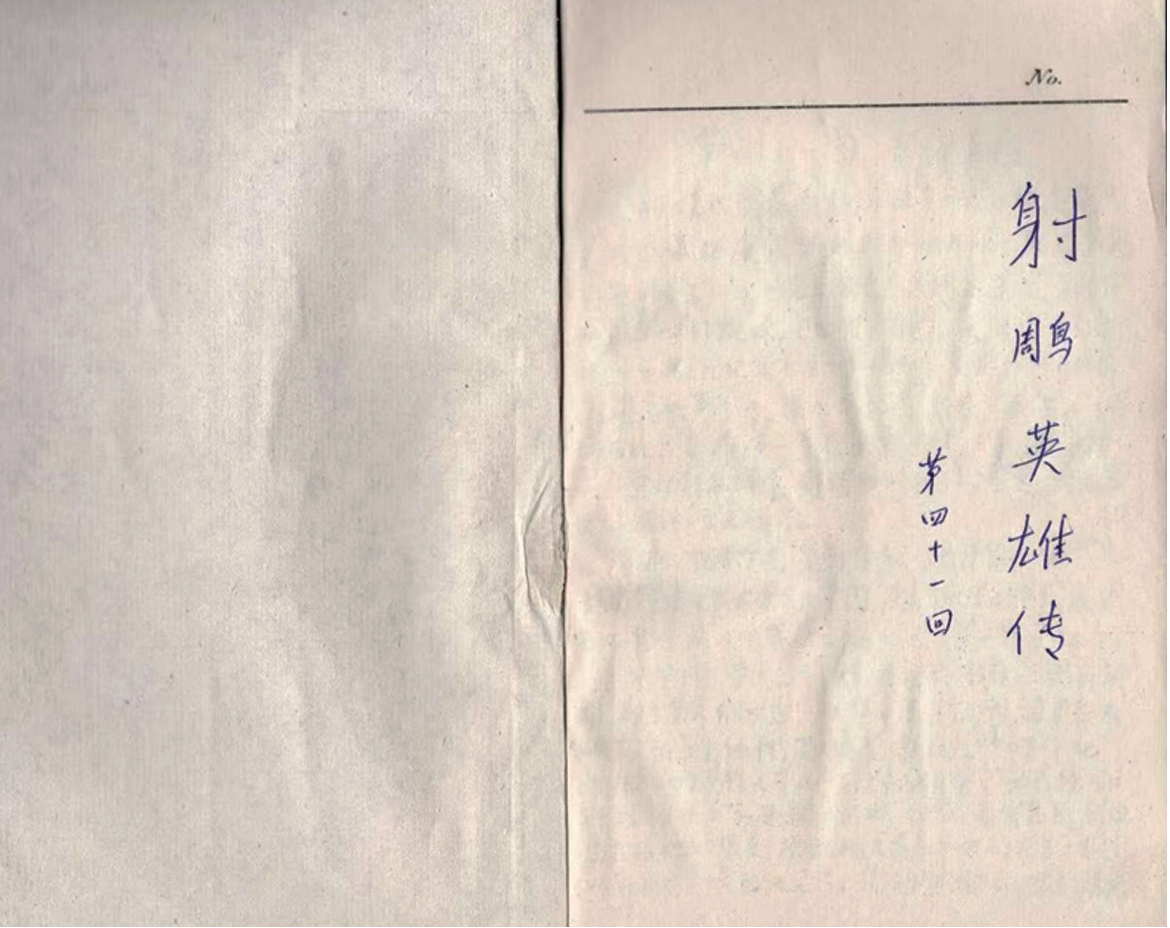 No.
射雕英雄传
第四十一回